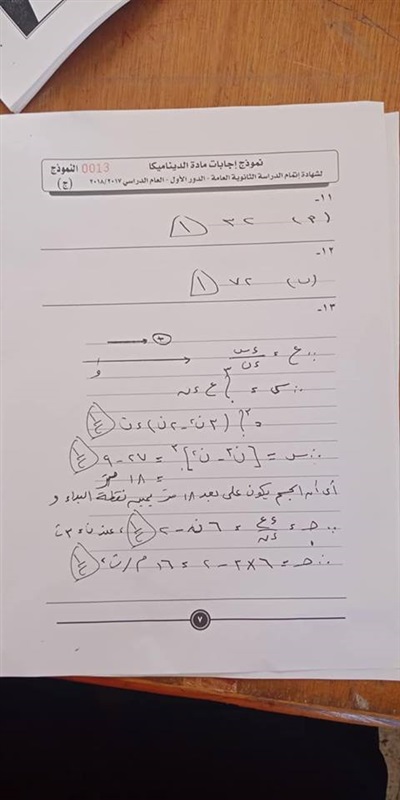 نموذج إجابات مادة الديناميكا
0013 النموذج
لشهادة إتمام الدراسة الثانوية العامة - الدور الأول - العام الدراسي ٢٠١٧/٢٠١٨
(ج)
١١-
(٩) ٣٢ ١
١٢-
(ب) ٧٢ ١
١٣-
+
و
∵ ع = ءس/ءن
∴ س = ∫ ع ءن
= ∫ (٣ن² - ٢ن) ءن ½
∴ س = [ن³ - ن²]³ = ٢٧ - ٩ ½
= ١٨ متر
أى أن الجسم يكون على بعد ١٨ متر يمين نقطة البداء و
∵ جـ = ءع/ءن = ٦ن - ٢ ½ ، عند ن = ٣ ث
∴ جـ = ٦×٣ - ٢ = ١٦ م/ث² ½
٧